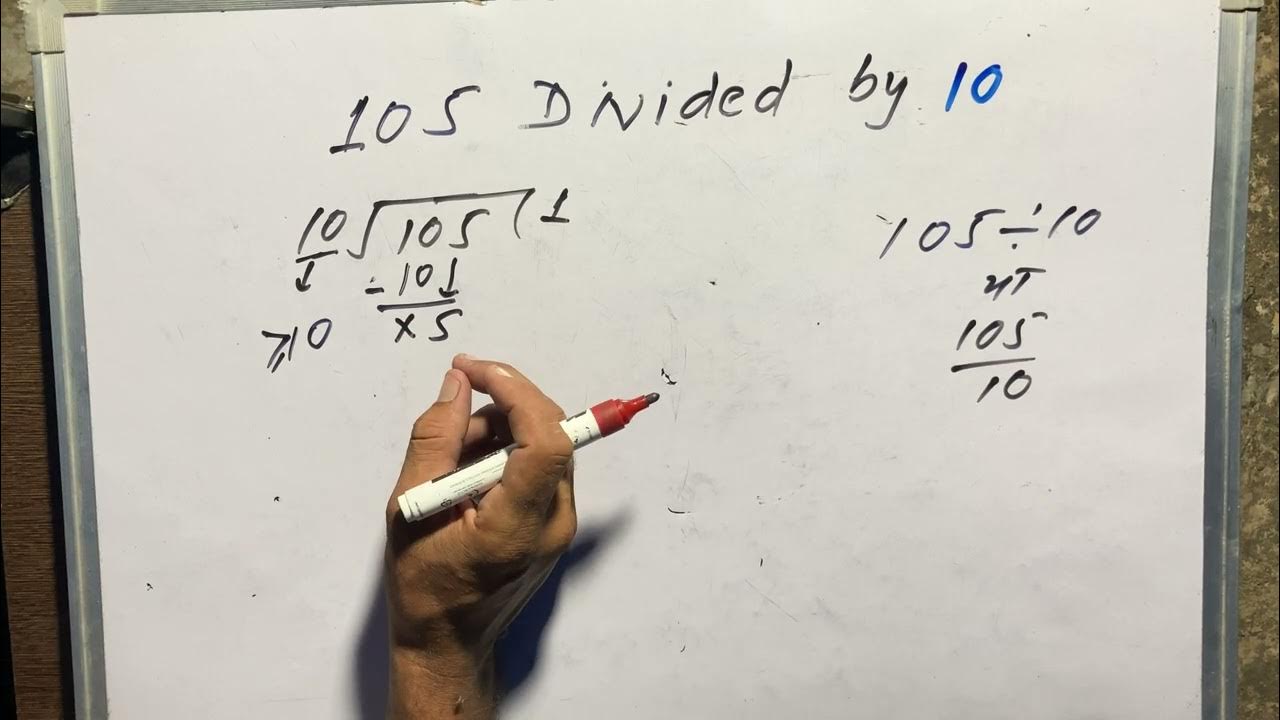 105 Divided by 10
10 105 1
- 10
⩾10
× 5
105 ÷ 10
या
105
10